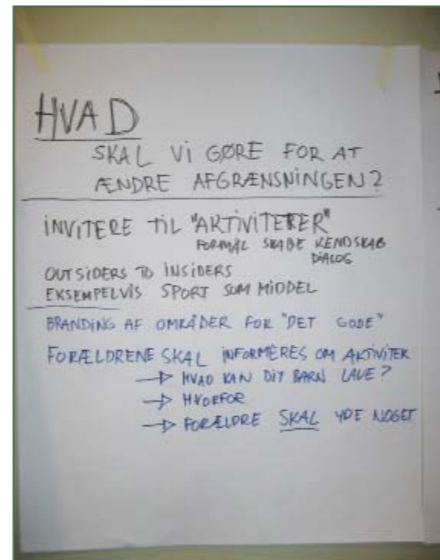 HVAD
SKAL VI GØRE FOR AT
ÆNDRE AFGRÆNSNINGEN?
INVITERE TIL "AKTIVITETER"
FORMÅL SKABE KENDSKAB
DIALOG
OUTSIDERS TO INSIDERS
EKSEMPELVIS SPORT SOM MIDDEL
BRANDING AF OMRÅDER FOR "DET GODE"
FORÆLDRENE SKAL INFORMERES OM AKTIVITER
→ HVAD KAN DIT BARN LAVE?
→ HVORFOR
→ FORÆLDRE SKAL YDE NOGET